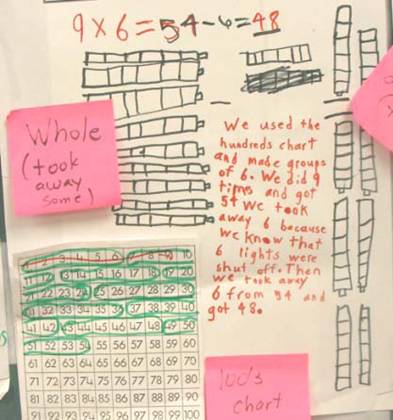 9 × 6 = 54 - 6 = 48
Whole
(took
away
some)
We used the
hundreds chart
and made groups
of 6. We did 9
times and got
54 we took
away 6 because
we know that
6 lights were
shut off. Then
we took away
6 from 54 and
got 48.
1 2 3 4 5 6 7 8 9 10
11 12 13 14 15 16 17 18 19 20
21 22 23 24 25 26 27 28 29 30
31 32 33 34 35 36 37 38 39 40
41 42 43 44 45 46 47 48 49 50
51 52 53 54 55 56 57 58 59 60
61 62 63 64 65 66 67 68 69 70
71 72 73 74 75 76 77 78 79 80
81 82 83 84 85 86 87 88 89 90
91 92 93 94 95 96 97 98 99 100
100's
chart